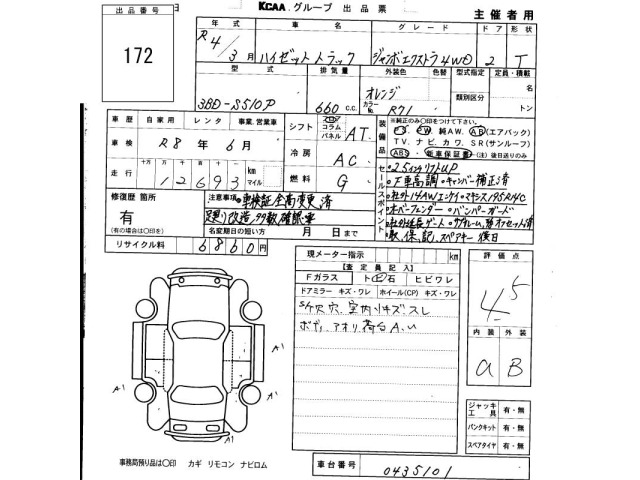 KCAA.グループ 出品票
主催者用
出品番号
172
年式 車名 グレード ドア 形状
R4/3月 ハイゼットトラック ジャンボエクストラ4WD 2 T
型式 排気量 外装色 色替 型式指定 定員・積載
3BD-S510P 660 c.c. オレンジ カラーNo. R71 類別区分 名 トン
車歴 自家用 レンタ 事業、営業車
シフト フロア コラム パネル AT
装備品 ※純正のみ○印をつけて下さい。
P.S. P.W. 純AW. AB(エアバック)
TV. ナビ. カワ. SR(サンルーフ)
ABS 新車保証書 (注)後日送りのみ
車検 R8年6月
冷房 AC
走行 十万 万 千 百 十 km マイル
12693
燃料 G
セールスポイント
•2.5インチリフトUP
•下車高調•キャンバー補正済
•社外14AWエンケイ•
195R14C
•オーバーフェンダー•バンパーガード
保、記、スペアキー後日
修復歴 箇所
有
(有の場合は○印を)
注意事項 •車検証全高変更済
足廻り改造、多数確認要
名変期日の短い方 月 日まで
リサイクル料 6860円
現メーター指示 km
【査定員記入】
Fガラス トビ石 ヒビワレ
ドアミラー キズ・ワレ ホイール(CP) キズ・ワレ
穴、室内小キズ・スレ
ボディ、アオリ、荷台A.U
評価点
4.5
内装 外装
a B
A1
A1
A1
A1
ジャッキ 工具 有・無
パンクキット 有・無
スペアタイヤ 有・無
事務局預り品は○印 カギ リモコン ナビロム
車台番号 0435101